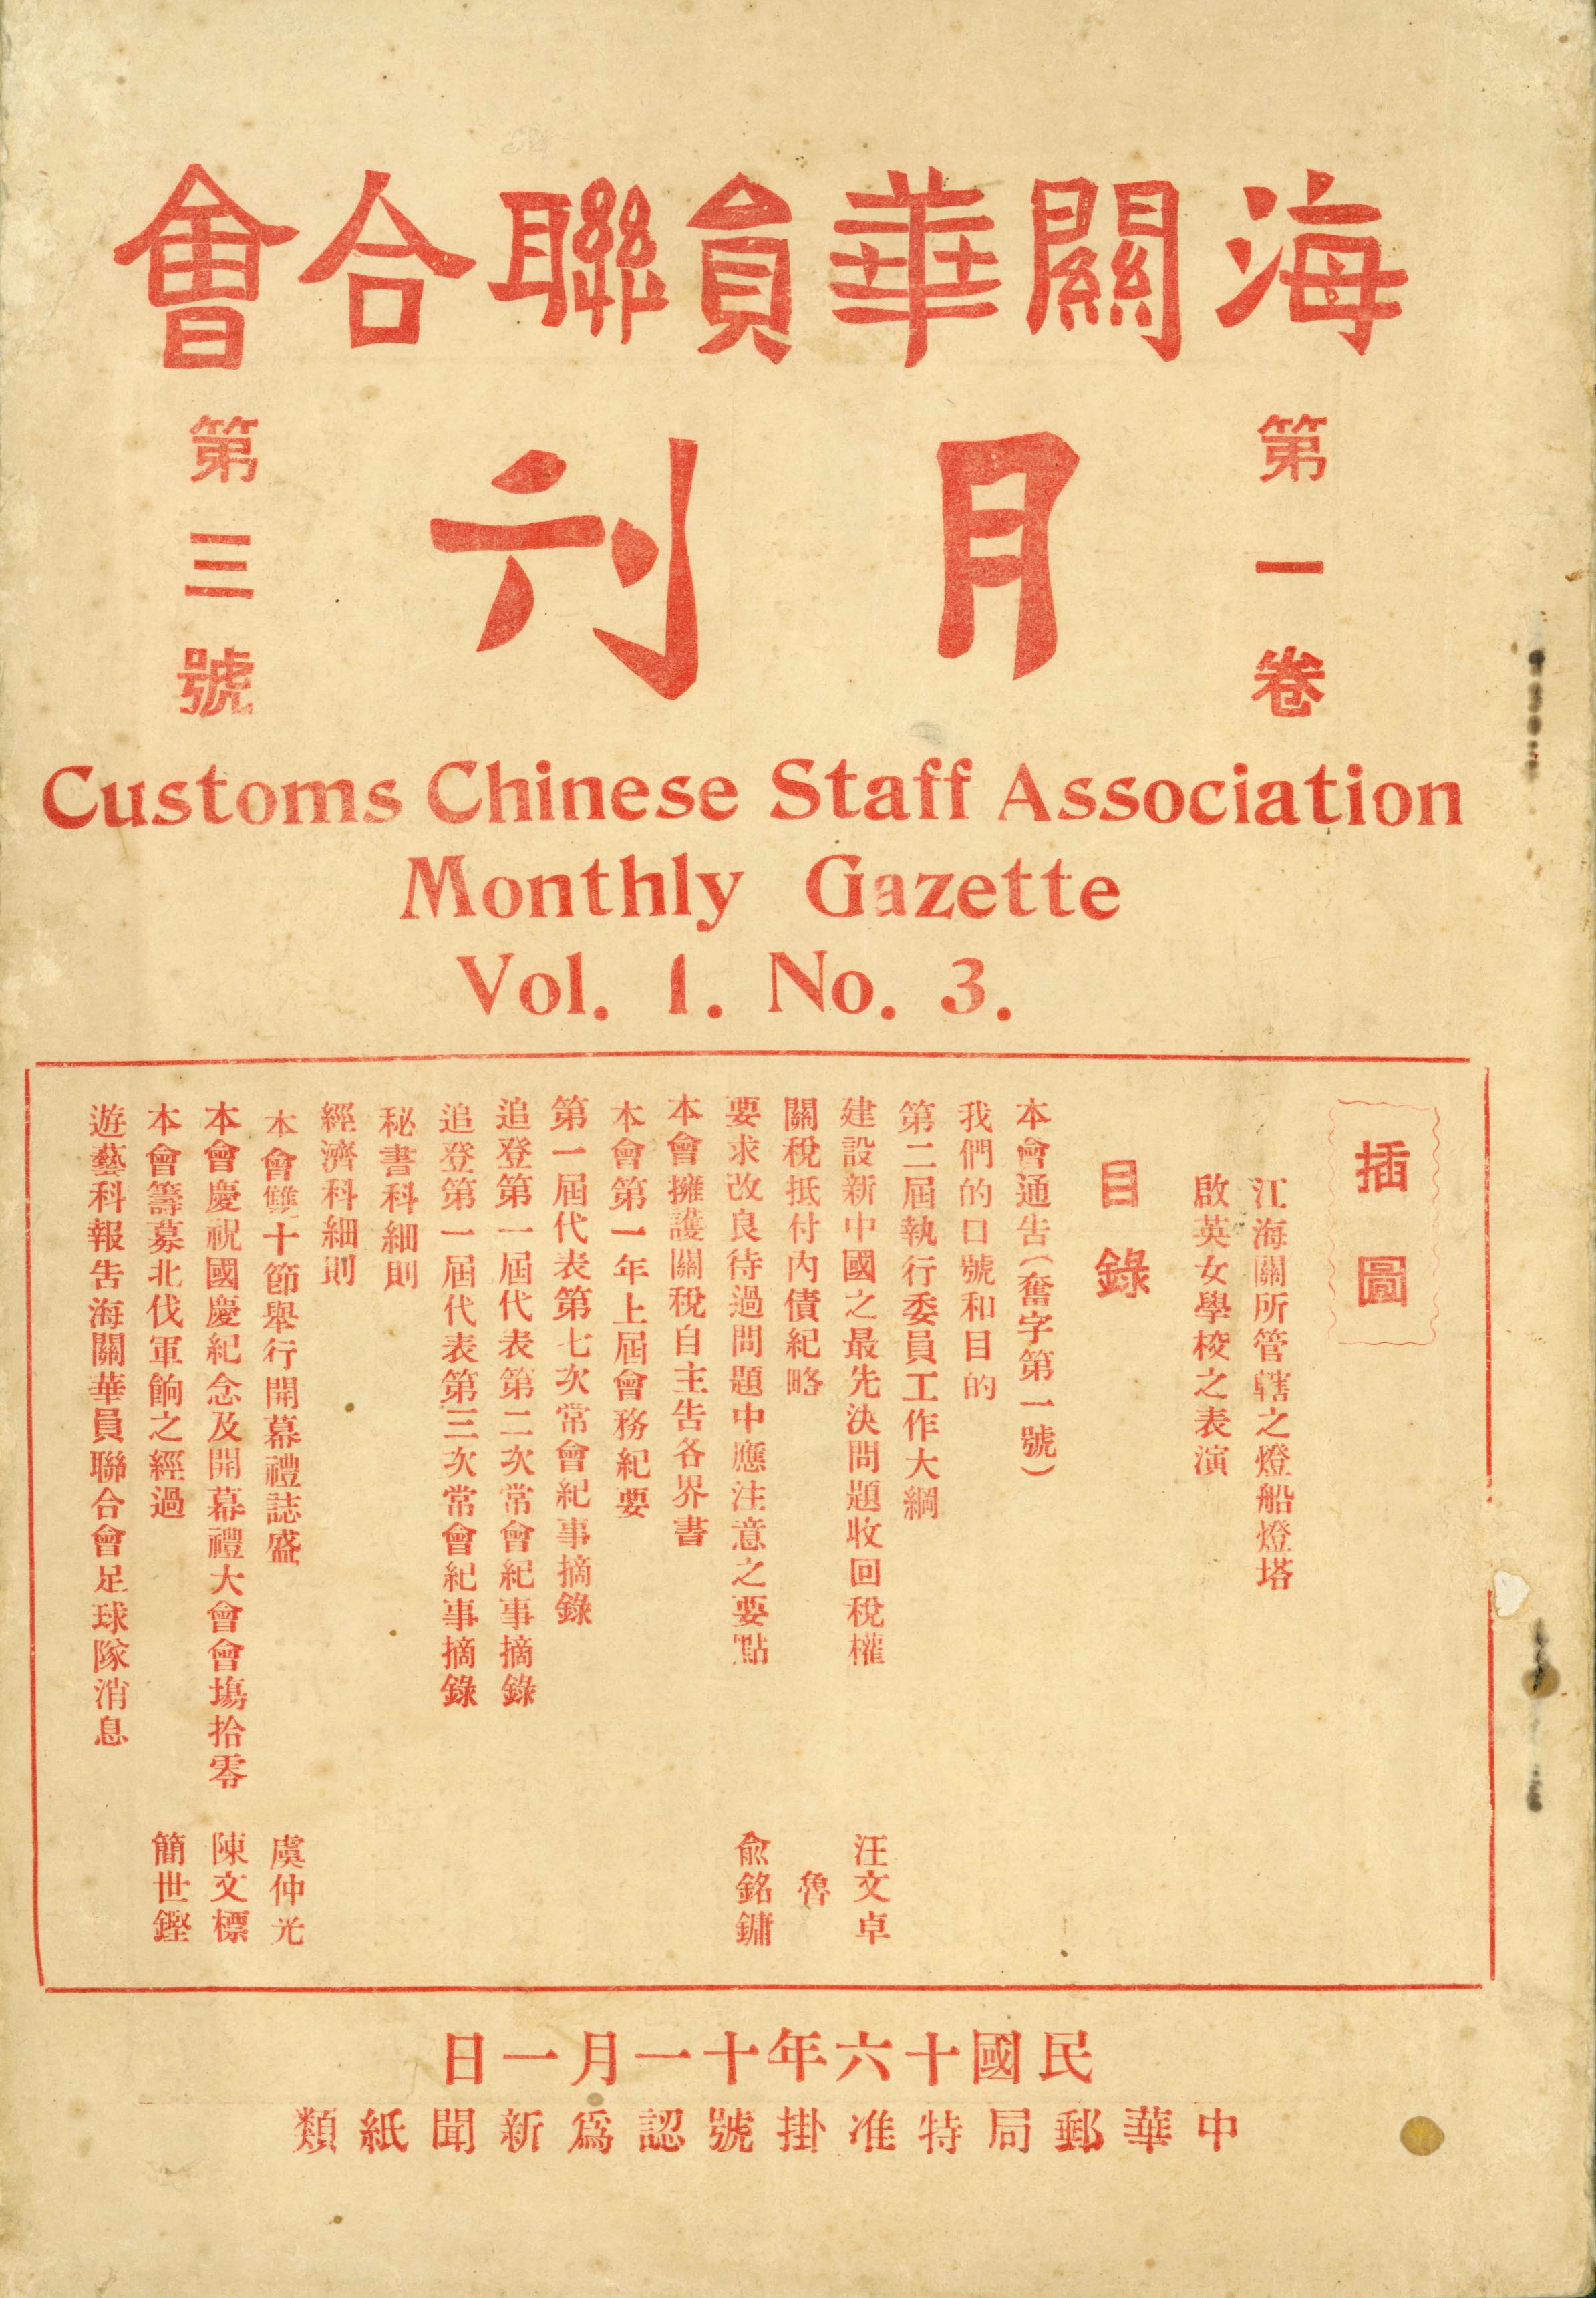 海關華員聯合會
月刊
第一卷
第三號
Customs Chinese Staff Association
Monthly Gazette
Vol. 1. No. 3.
插圖
江海關所管轄之燈船燈塔
啟英女學校之表演
目錄
本會通告（奮字第一號）
我們的口號和目的
第二屆執行委員工作大綱
建設新中國之最先決問題收回稅權 汪文卓
關稅抵付內債紀略 魯
要求改良待過問題中應注意之要點 俞銘鏞
本會擁護關稅自主告各界書
本會第一年上屆會務紀要
第一屆代表第七次常會紀事摘錄
追登第一屆代表第二次常會紀事摘錄
追登第一屆代表第三次常會紀事摘錄
秘書科細則
經濟科細則
本會雙十節舉行開幕禮誌盛 虞仲光
本會慶祝國慶紀念及開幕禮大會會塲拾零 陳文標
本會籌募北伐軍餉之經過 簡世鏗
遊藝科報告海關華員聯合會足球隊消息
民國十六年十一月一日
中華郵局特准掛號認爲新聞紙類